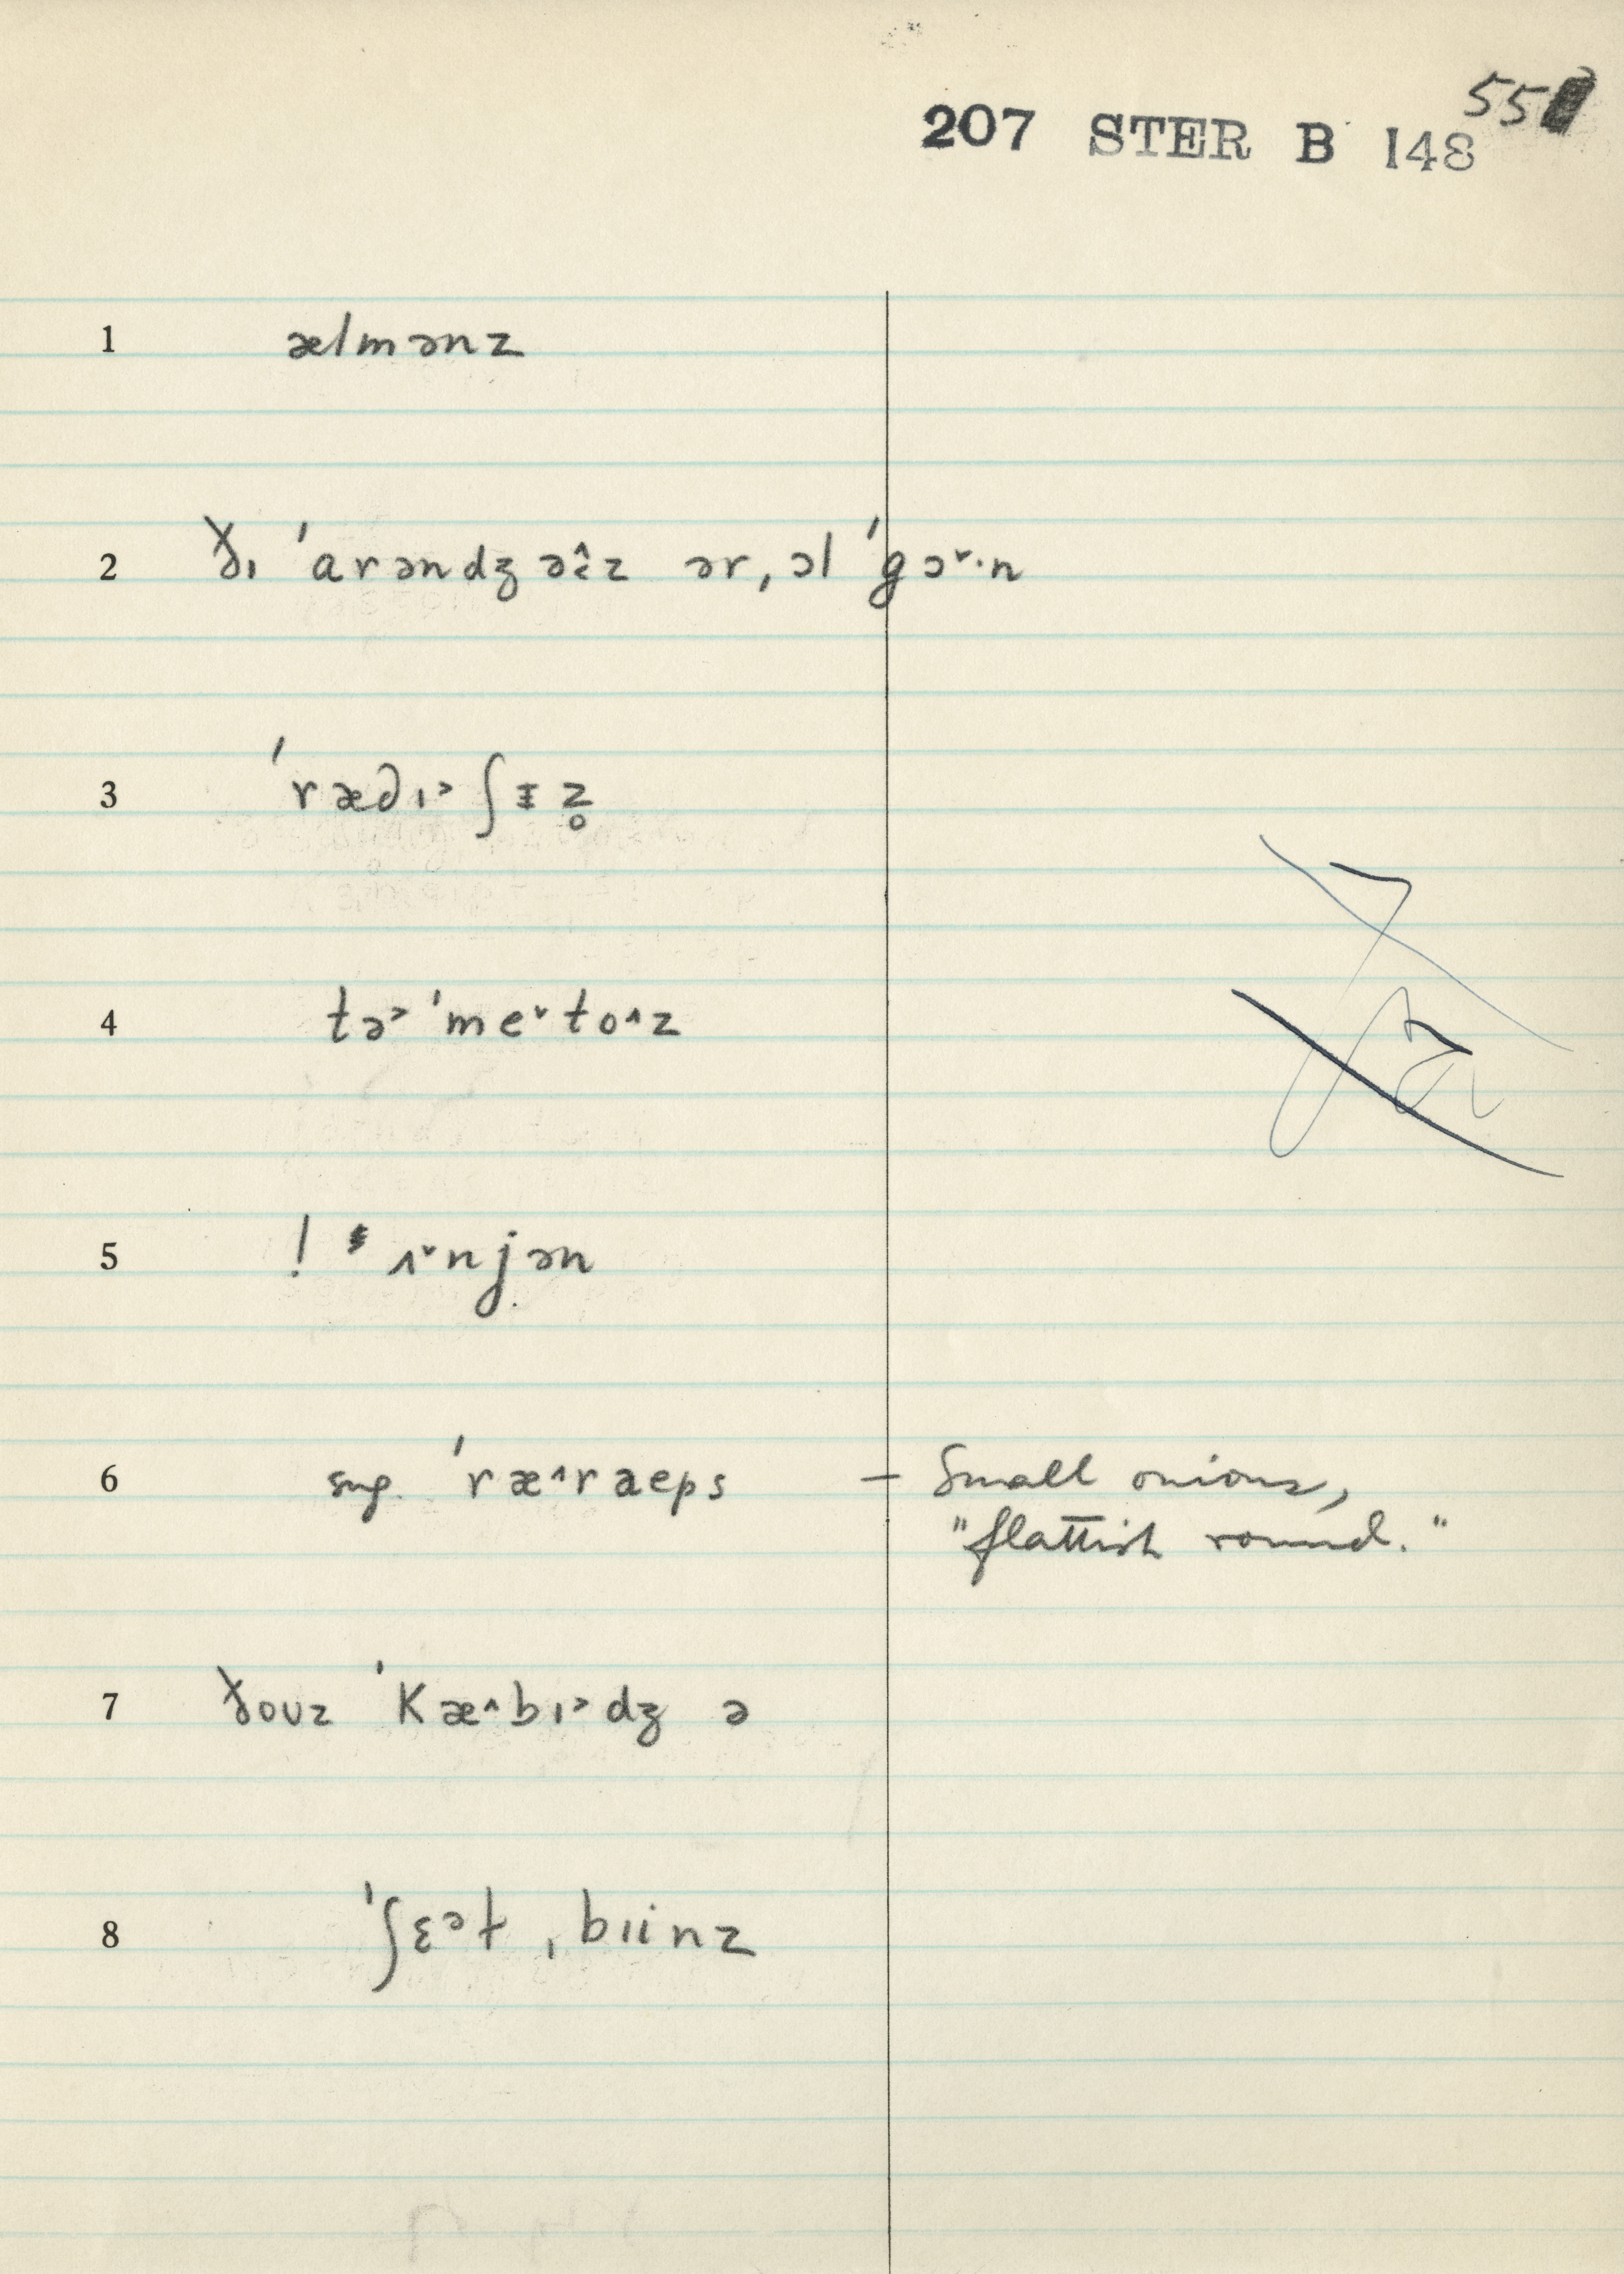 55
207 STER B 148
1 ælmənz
2 ðɪ 'arəndʒəɨ̂z ər ˌɔl 'gɔ˅·n
3 'rædɪ˃ʃɪz̥
4 tə˃'me˅to^z
5 ! ʌ˅njən
6 sng. 'ræ^ræps – Small onions,
"flattish round."
7 ðoʊz 'kæ^bɪ˃dʒ ə
8 'ʃɛᵊɫ ˌbɪinz